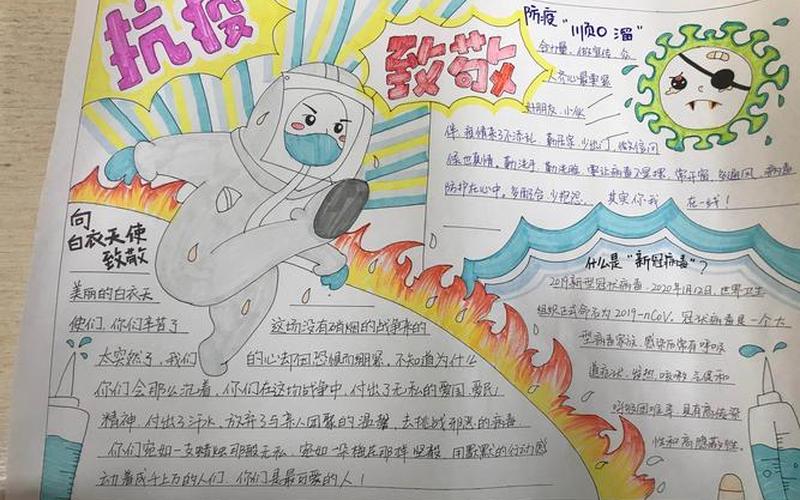 抗疫
致敬
防疫"顺口溜"
合力量，做宣传，众
人齐心最重要
好朋友，小伙
伴，疫情来了不添乱，勤在家，少出门，
保也真情，勤洗手，勤洗脸，要让病毒不
防护在心中，多配合，少抱怨，其实你我
在一线！
向
白衣天使
致敬
美丽的白衣天
使们，你们辛苦了
这场没有硝烟的战争来的
太突然了，我们
的心却因恐惧而绷紧，不知道为什么
你们会那么沉着，你们在这场战争中，付出了无私的爱国，爱民
精神，付出了汗水，放弃了与亲人团聚的温馨，去挑战邪恶的病毒
你们宛如一支蜡烛那般无私，宛如一朵梅花那样坚毅，用默默的行动感
动着成千上万的人们，你们是最可爱的人！
什么是"新冠病毒"？
2019新型冠状病毒，2020年1月12日，世界卫生
组织正式命名为2019-nCoV，冠状病毒是一个大
型病毒家族，感染后常有呼吸
道症状，发热，咳嗽，气促和
呼吸困难等，具有高传染
性和高隐蔽性。